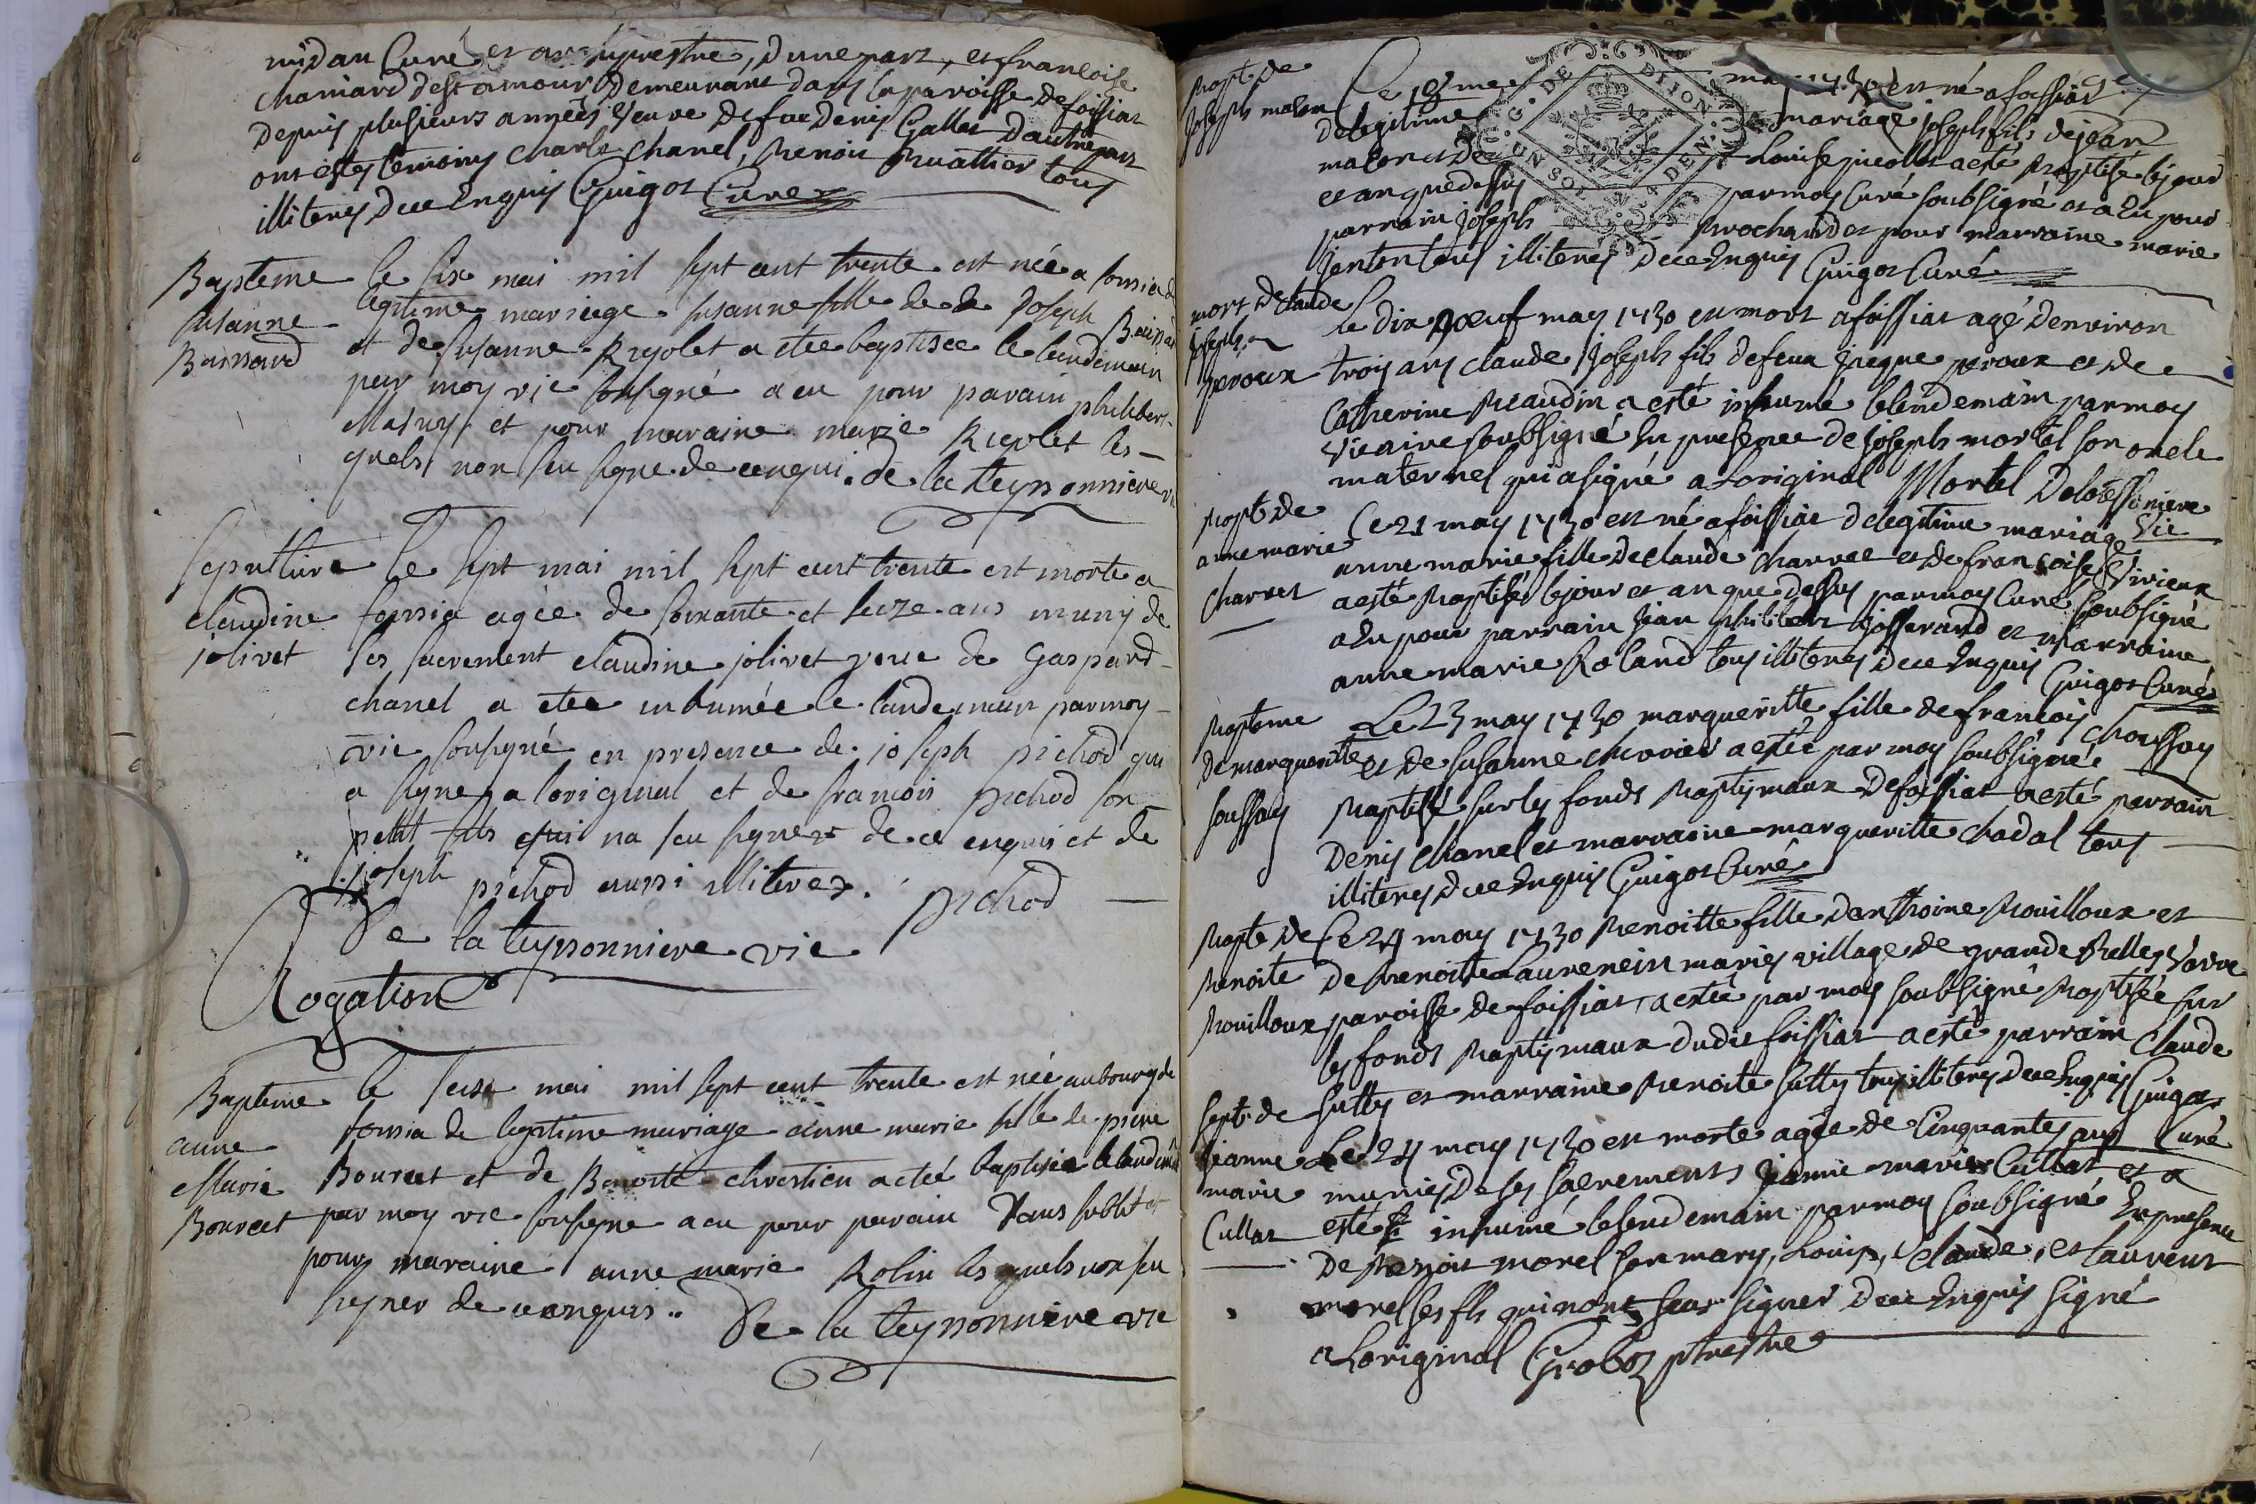 midan Curé et archiprestre, dune part, et francoise
chaniard dest amour demeurant dans la paroisse de foissiat
depuis plusieurs années veuve de feu Denis Gallet dautre part
ont estes temoins Charle Chanel, Benoit Buathier tous
illiteres de ce Enquis Guigot Curé
Bapteme
susanne
Baissard
le six mai mil sept cent trente est née a foissia de
legitime mariage susanne fille de Joseph Baissard
et de susanne Rigolet a etee baptisee le lendemain
par moy vic soussigné a eu pour parain philibert
Mathy et pour maraine marie Rigolet les
quels non seu signe de ce enqui. De la teyssonniere vic
sepulture
claudine
jolivet
le sept mai mil sept cent trente est morte a
foissia agée de soixante et seize ans muny de
ses sacrement claudine jolivet veve de Gaspard
chanel a etee inhumée le landemain par moy
vic sousigné en presence de joseph pichod qui
a signe a loriginal et de francois pichod son
petit fils qui na seu signer de ce enquis et de
joseph pichod aussi illiteres. pichod
De la teyssonniere vic
Rogation
Bapteme
anne
Marie
Bourcet
le seize mai mil sept cent trente est née au bourg de
foissia de legitime mariage anne marie fille de piere
Bourcet et de Benoite chrestien a etee baptisée le landemain
par moy vic sousigne a eu pour parain et
pour maraine anne marie Rolin les quels non seu
signer de ce enquis. De la teyssonniere vic
Bapt. de
Joseph maton
Ce may 1730 est né a foissiat
de legitime mariage joseph fils de jean
maton et de Louise picollet a esté Baptisé le jour
et an que dessus par moy Curé soubsigné et a Eu pour
parrain joseph Brochand et pour marraine marie
jenton tous illiteres de ce Enquis Guigot Curé
mort de claude
joseph
peroux
Le dix noeuf may 1730 est mort a foissiat agé denviron
trois ans claude joseph fils de feu jacque peroux et de
Catherine Beaudin a esté inhumé le lendemain par moy
vicaire soubsigné En presence de joseph mortel son oncle
maternel qui a signé a Loriginal Mortel Delateissoniere
vic
Bapt. de
anne marie
Charvet
Ce 21 may 1730 est né a foissiat de legitime mariage
anne marie fille de claude Charvet et de francoise Vivieux
a esté Baptisé le jour et an que dessus par moy Curé soubsigné
a Eu pour parrain jean philibert josserand et Marraine
anne marie Roland tous illiteres de ce Enquis Guigot Curé
Bapteme
de marguerite
soussay
Le 23 may 1730 marguerite fille de francois choussay
et de susanne chevrier a esté par moy soubsigné
Baptisé sur les fonds Baptismaux de foissiat a esté parrain
Denis Chanel et marraine marguerite chadal tous
illiteres de ce Enquis Guigot Curé
Bapt. de
Benoite
Bouilloux
Ce 24 may 1730 Benoitte fille danthoine Bouilloux et
de Benoitte Laurencin mariés village de grande Belle vavre
paroisse de foissiat, a estée par moy soubsigné Baptisée sur
les fonds Baptismaux dudit foissiat a esté parrain Claude
sutty et marraine Benoite sutty tous illiteres de ce Enquis Guigot
Curé
Sept. de
jeanne
marie
Cullat
Le 24 may 1730 est morte agée de Cinquante ans
munie de ses sacrements jeanne marie Cullat et a
esté inhumé le lendemain par moy soubsigné En presence
de Benoit morel son mary, Louis, Claude, et Laurent
morel ses fils qui nont sceu signer de ce Enquis signé
a Loriginal Groboz prestre